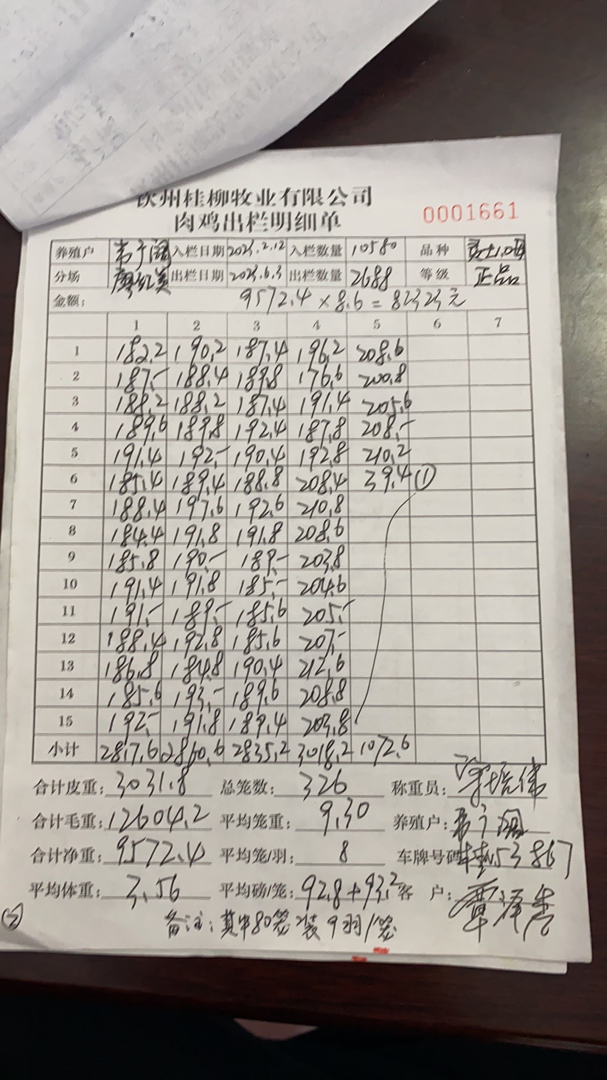 钦州桂柳牧业有限公司
肉鸡出栏明细单 0001661
养殖户 韦 入栏日期 2023.2.12 入栏数量 10580 品种
分场 廖红英 出栏日期 2023.6.3 出栏数量 2688 等级 正品
金额: 9572.4×8.6=82323元
1 2 3 4 5 6 7
1 182.2 190.2 187.4 196.2 208.6
2 187.- 188.4 189.8 176.6 200.8
3 188.2 188.2 187.4 191.4 205.6
4 189.6 189.8 192.4 187.8 208.-
5 191.4 192.- 190.4 192.8 210.2
6 185.4 189.4 188.8 208.4 39.4①
7 188.4 197.6 192.6 210.8
8 184.4 191.8 191.8 208.6
9 185.8 190.- 189.- 203.8
10 191.4 191.8 185.- 204.6
11 191.- 189.- 185.6 205.-
12 188.4 192.8 185.6 207.-
13 186.8 184.8 190.4 212.6
14 185.6 193.- 189.6 208.8
15 192.- 191.8 189.4 203.8
小计 2817.6 2860.6 2835.2 3018.2 1072.6
合计皮重: 3031.8 总笼数: 326 称重员:
合计毛重: 12604.2 平均笼重: 9.30 养殖户: 韦
合计净重: 9572.4 平均笼/羽: 8 车牌号码: 53867
平均体重: 3.56 平均磅/笼: 92.8+93.2 客 户: 覃
备注: 其中80笼装9羽/笼